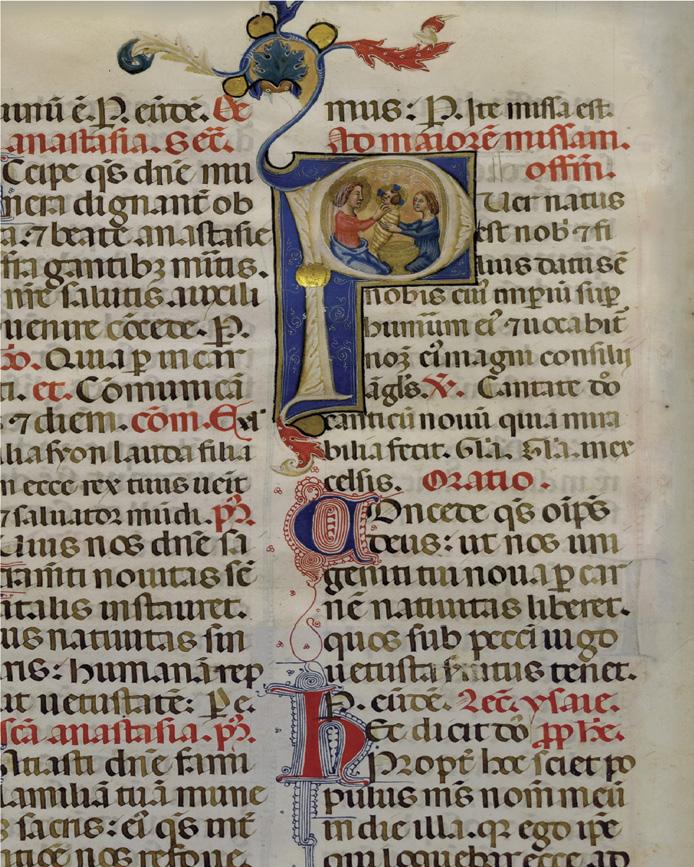 unū ē. P. eiusdē. De
anastasia. Scr̄.
Ccipe qs dn̄e mu
nera dignant̄ ob
a: ⁊ beate anastasie
ssragantibȝ mitis.
nr̄e salutis auxili
uenire cōcede. P.
Quia p incar
n. et. Cōmunicā
⁊ diem. com. Ex
lia syon lauda filia
n ecce rex tuus ueit
⁊ saluator mūdi. p̄.
uius nos dn̄e sa
cramti nouitas sē
italis instauret.
us natiuitas sin
ris: humanā rep
ut uetustatē: P e.
sc̄a anastasia. p̄.
Atiasti dn̄e fami
familiā tuā mune
sacris: ei qs mt
nos refoue.
mus: P. Ite missa est.
Ad maiorē missam.
offm̄.
P Uer natus
est nob ⁊ fi
lius datus ē
nobis cui īmpiū sup
humūm ei ⁊ uocabit
noȝ ei magni consilij
āgls. V̄. Cantate dō
canticū nouū quia mira
bilia fecit. Gl̄a. Gl̄a. in ex
celsis. Oratio.
COncede qs oīps
deus: ut nos uni
geniti tui noua p car
nē natiuitas liberet.
quos sub pecci iugo
uetusta seruitus tenet.
P. eiūdē. Lec̄. ysaie.
HEc dicit dō. pphē.
Propt hoc sciet po
pulus ms nom̄ meū
in die illa. qȝ ego ipe
qui loquebar ecce ad